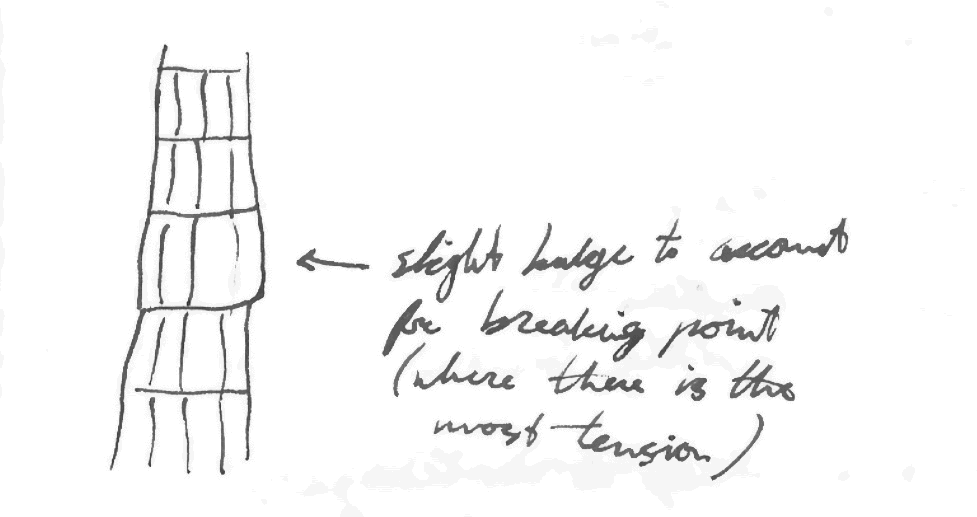 slight bulge to account
for breaking point
(where there is the
most tension)